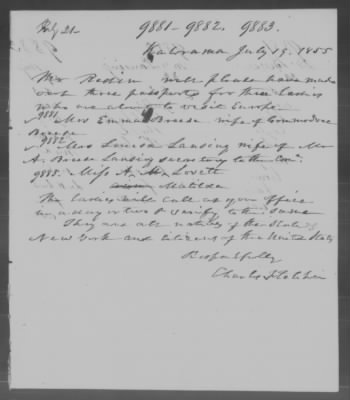 July 21 - 9881 - 9882. 9883.
Kalorama July 19. 1855
Mr will please have made
out three passports for three Ladies
who are about to visit Europe
9881
Mrs Emma Breese wife of Commodore
Breese
9882
Mrs Louisa Lansing wife of Mr
A. Breese Lansing secretary to the Com:
9883. Miss A. M. Lovett
Matilda
The Ladies will call at your office
in a day or two & verify to the same
They are all natives of the State of
New York and citizens of the United States
Respectfully
Charles Fletcher